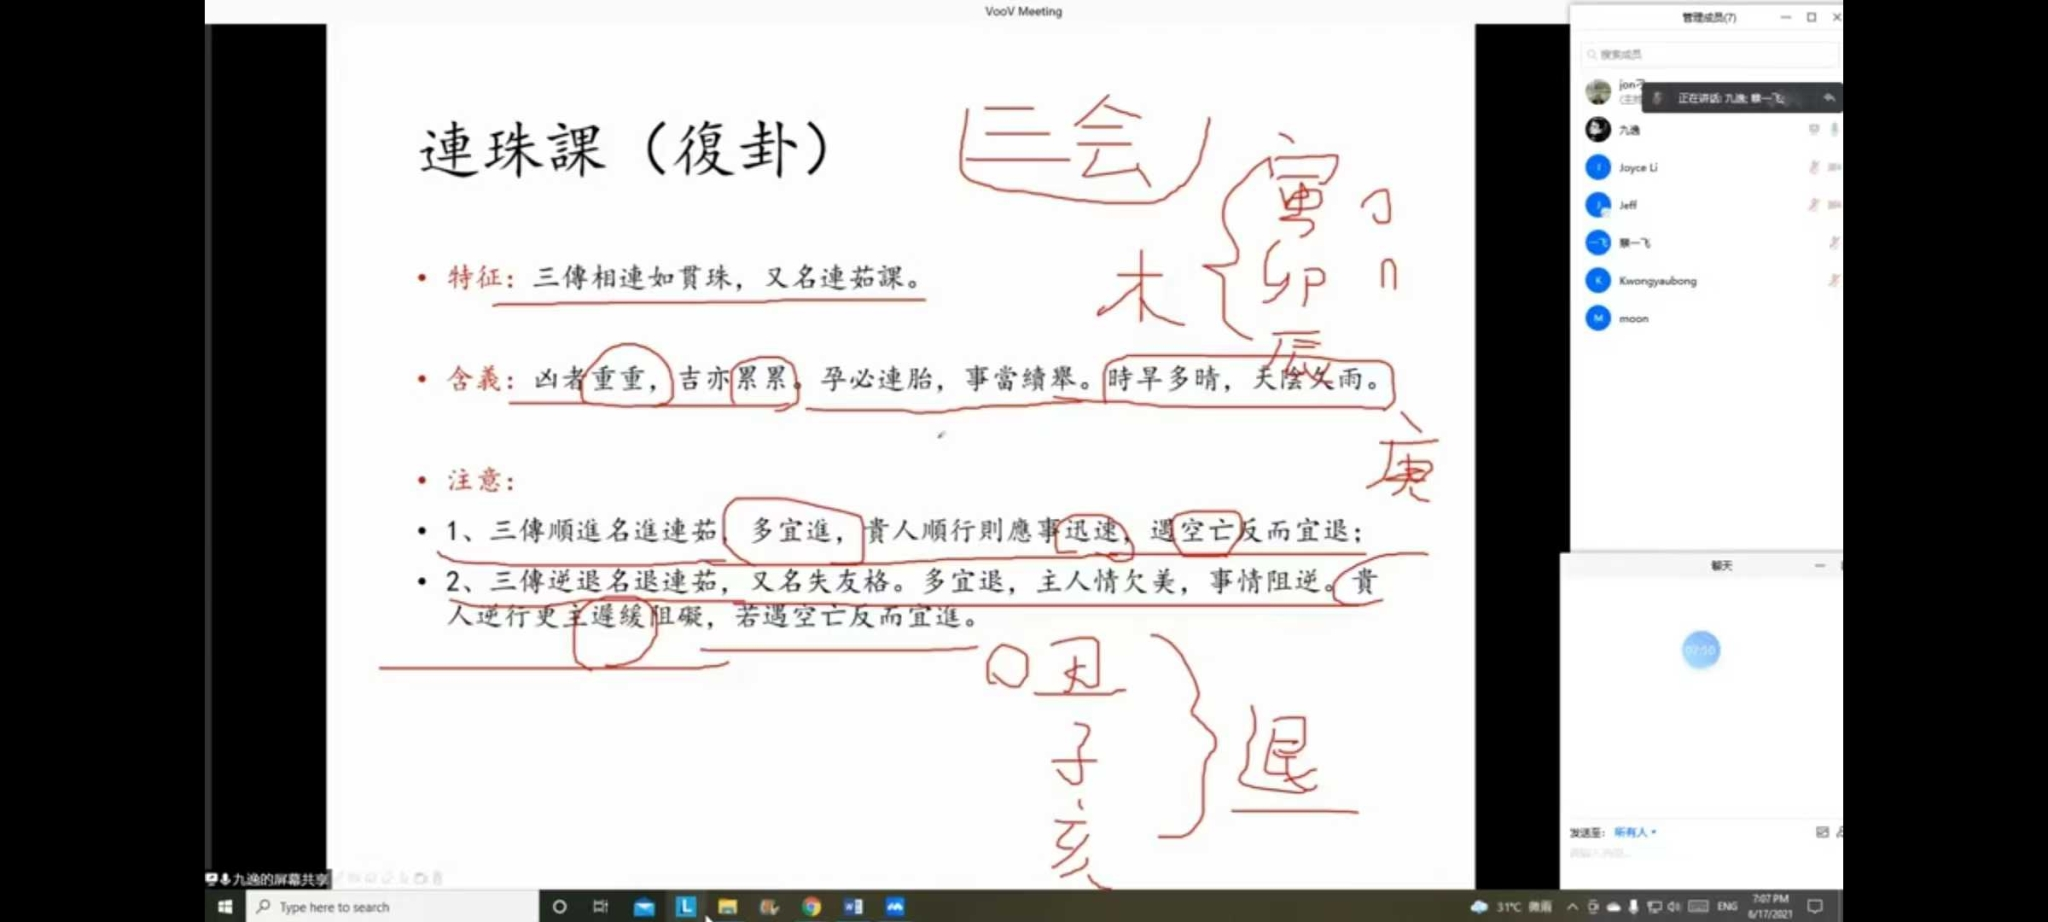 VooV Meeting
管理成员(7)
搜索成员
正在讲话: 九逸; 蔡一飞
九逸
Joyce Li
Jeff
蔡一飞
Kwongyaubong
moon
連珠課（復卦）
三会
寅
卯
辰
木
• 特征：三傳相連如貫珠，又名連茹課。
• 含義：凶者重重，吉亦累累。孕必連胎，事當續舉。時旱多晴，天陰久雨。
庚
• 注意：
• 1、三傳順進名進連茹，多宜進，貴人順行則應事迅速，遇空亡反而宜退；
• 2、三傳逆退名退連茹，又名失友格。多宜退，主人情欠美，事情阻逆。貴
人逆行更主遲緩阻礙，若遇空亡反而宜進。
丑
子
亥
退
聊天
发送至: 所有人
九逸的屏幕共享
Type here to search
31°C 微雨
ENG
7:07 PM
6/17/2021